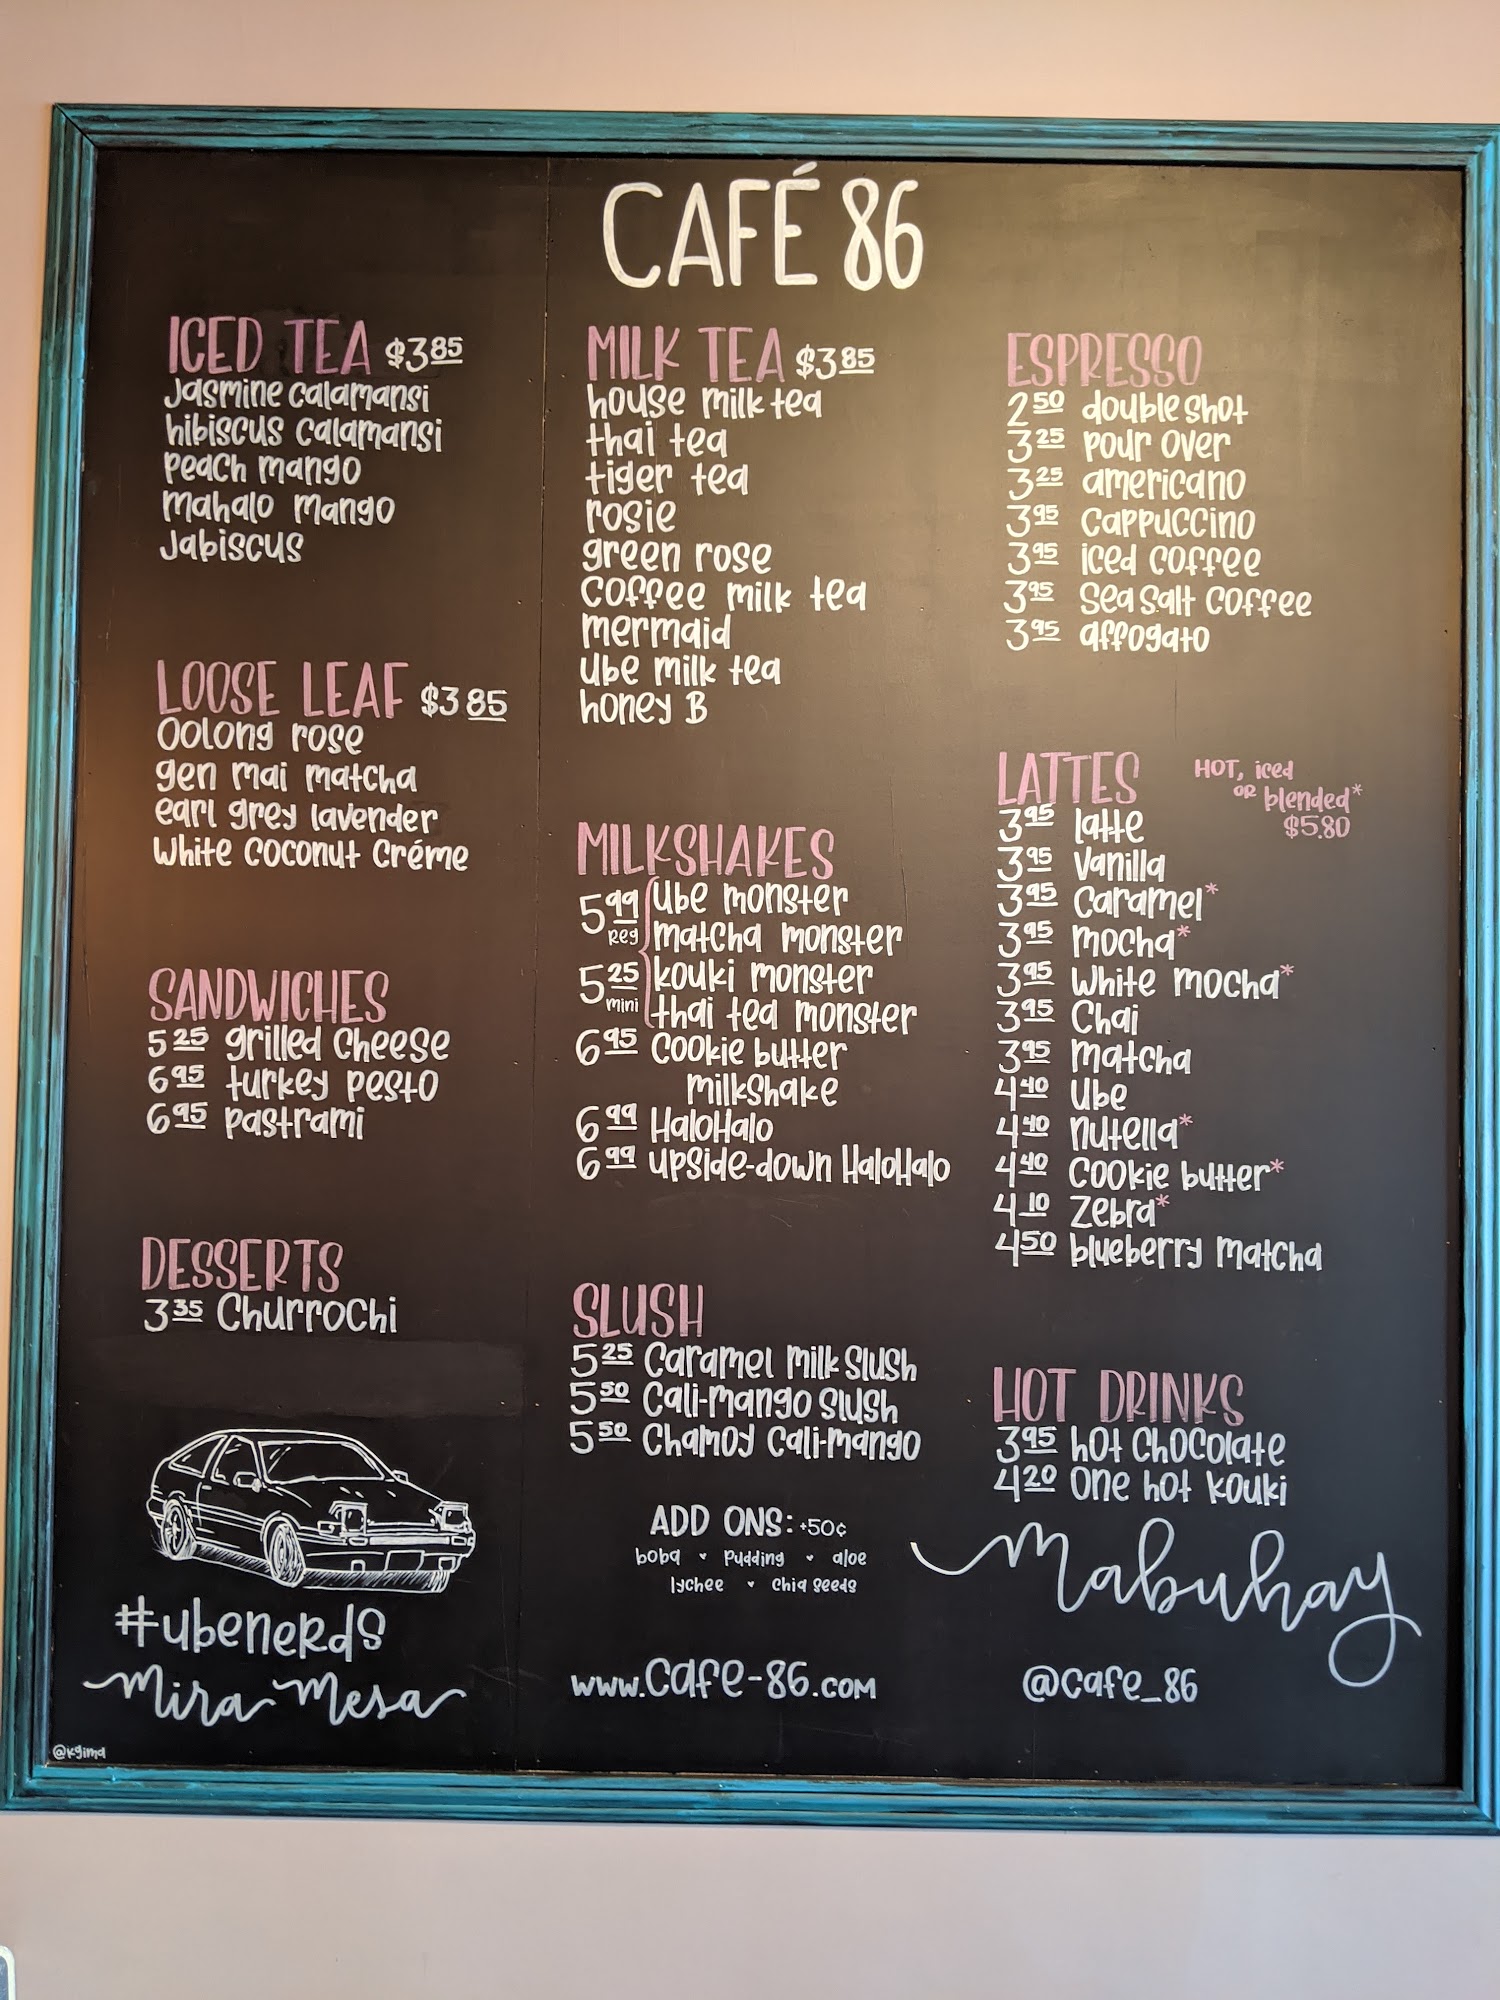 CAFÉ 86
ICED TEA $3 85
Jasmine Calamansi
hibiscus Calamansi
Peach mango
Mahalo mango
Jabiscus
LOOSE LEAF $3 85
Oolong rose
gen mai matcha
earl grey lavender
White Coconut Créme
SANDWICHES
5 25 grilled Cheese
6 95 turkey Pesto
6 95 Pastrami
DESSERTS
3 35 Churrochi
#ubenerds
Mira Mesa
@kgima
MILK TEA $3 85
house milk tea
thai tea
tiger tea
rosie
green rose
Coffee milk tea
mermaid
Ube milk tea
honey B
MILKSHAKES
5 99 Reg Ube monster
matcha monster
5 25 mini kouki monster
thai tea monster
6 95 Cookie butter
milkshake
6 99 HaloHalo
6 99 upside-down HaloHalo
SLUSH
5 25 Caramel Milk Slush
5 50 Cali-Mango Slush
5 50 Chamoy Cali-Mango
ADD ONS: +50¢
boba ♥ Pudding ♥ aloe
lychee ♥ Chia Seeds
www.Cafe-86.com
ESPRESSO
2 50 double shot
3 25 Pour Over
3 25 americano
3 95 Cappuccino
3 95 iced Coffee
3 95 Sea Salt Coffee
3 95 affogato
LATTES HOT, iced
OR blended*
$5.80
3 95 latte
3 95 Vanilla
3 95 Caramel*
3 95 Mocha*
3 95 White Mocha*
3 95 Chai
3 95 Matcha
4 40 Ube
4 40 Nutella*
4 40 Cookie butter*
4 10 Zebra*
4 50 blueberry Matcha
HOT DRINKS
3 95 hot Chocolate
4 20 One hot Kouki
Mabuhay
@Cafe_86